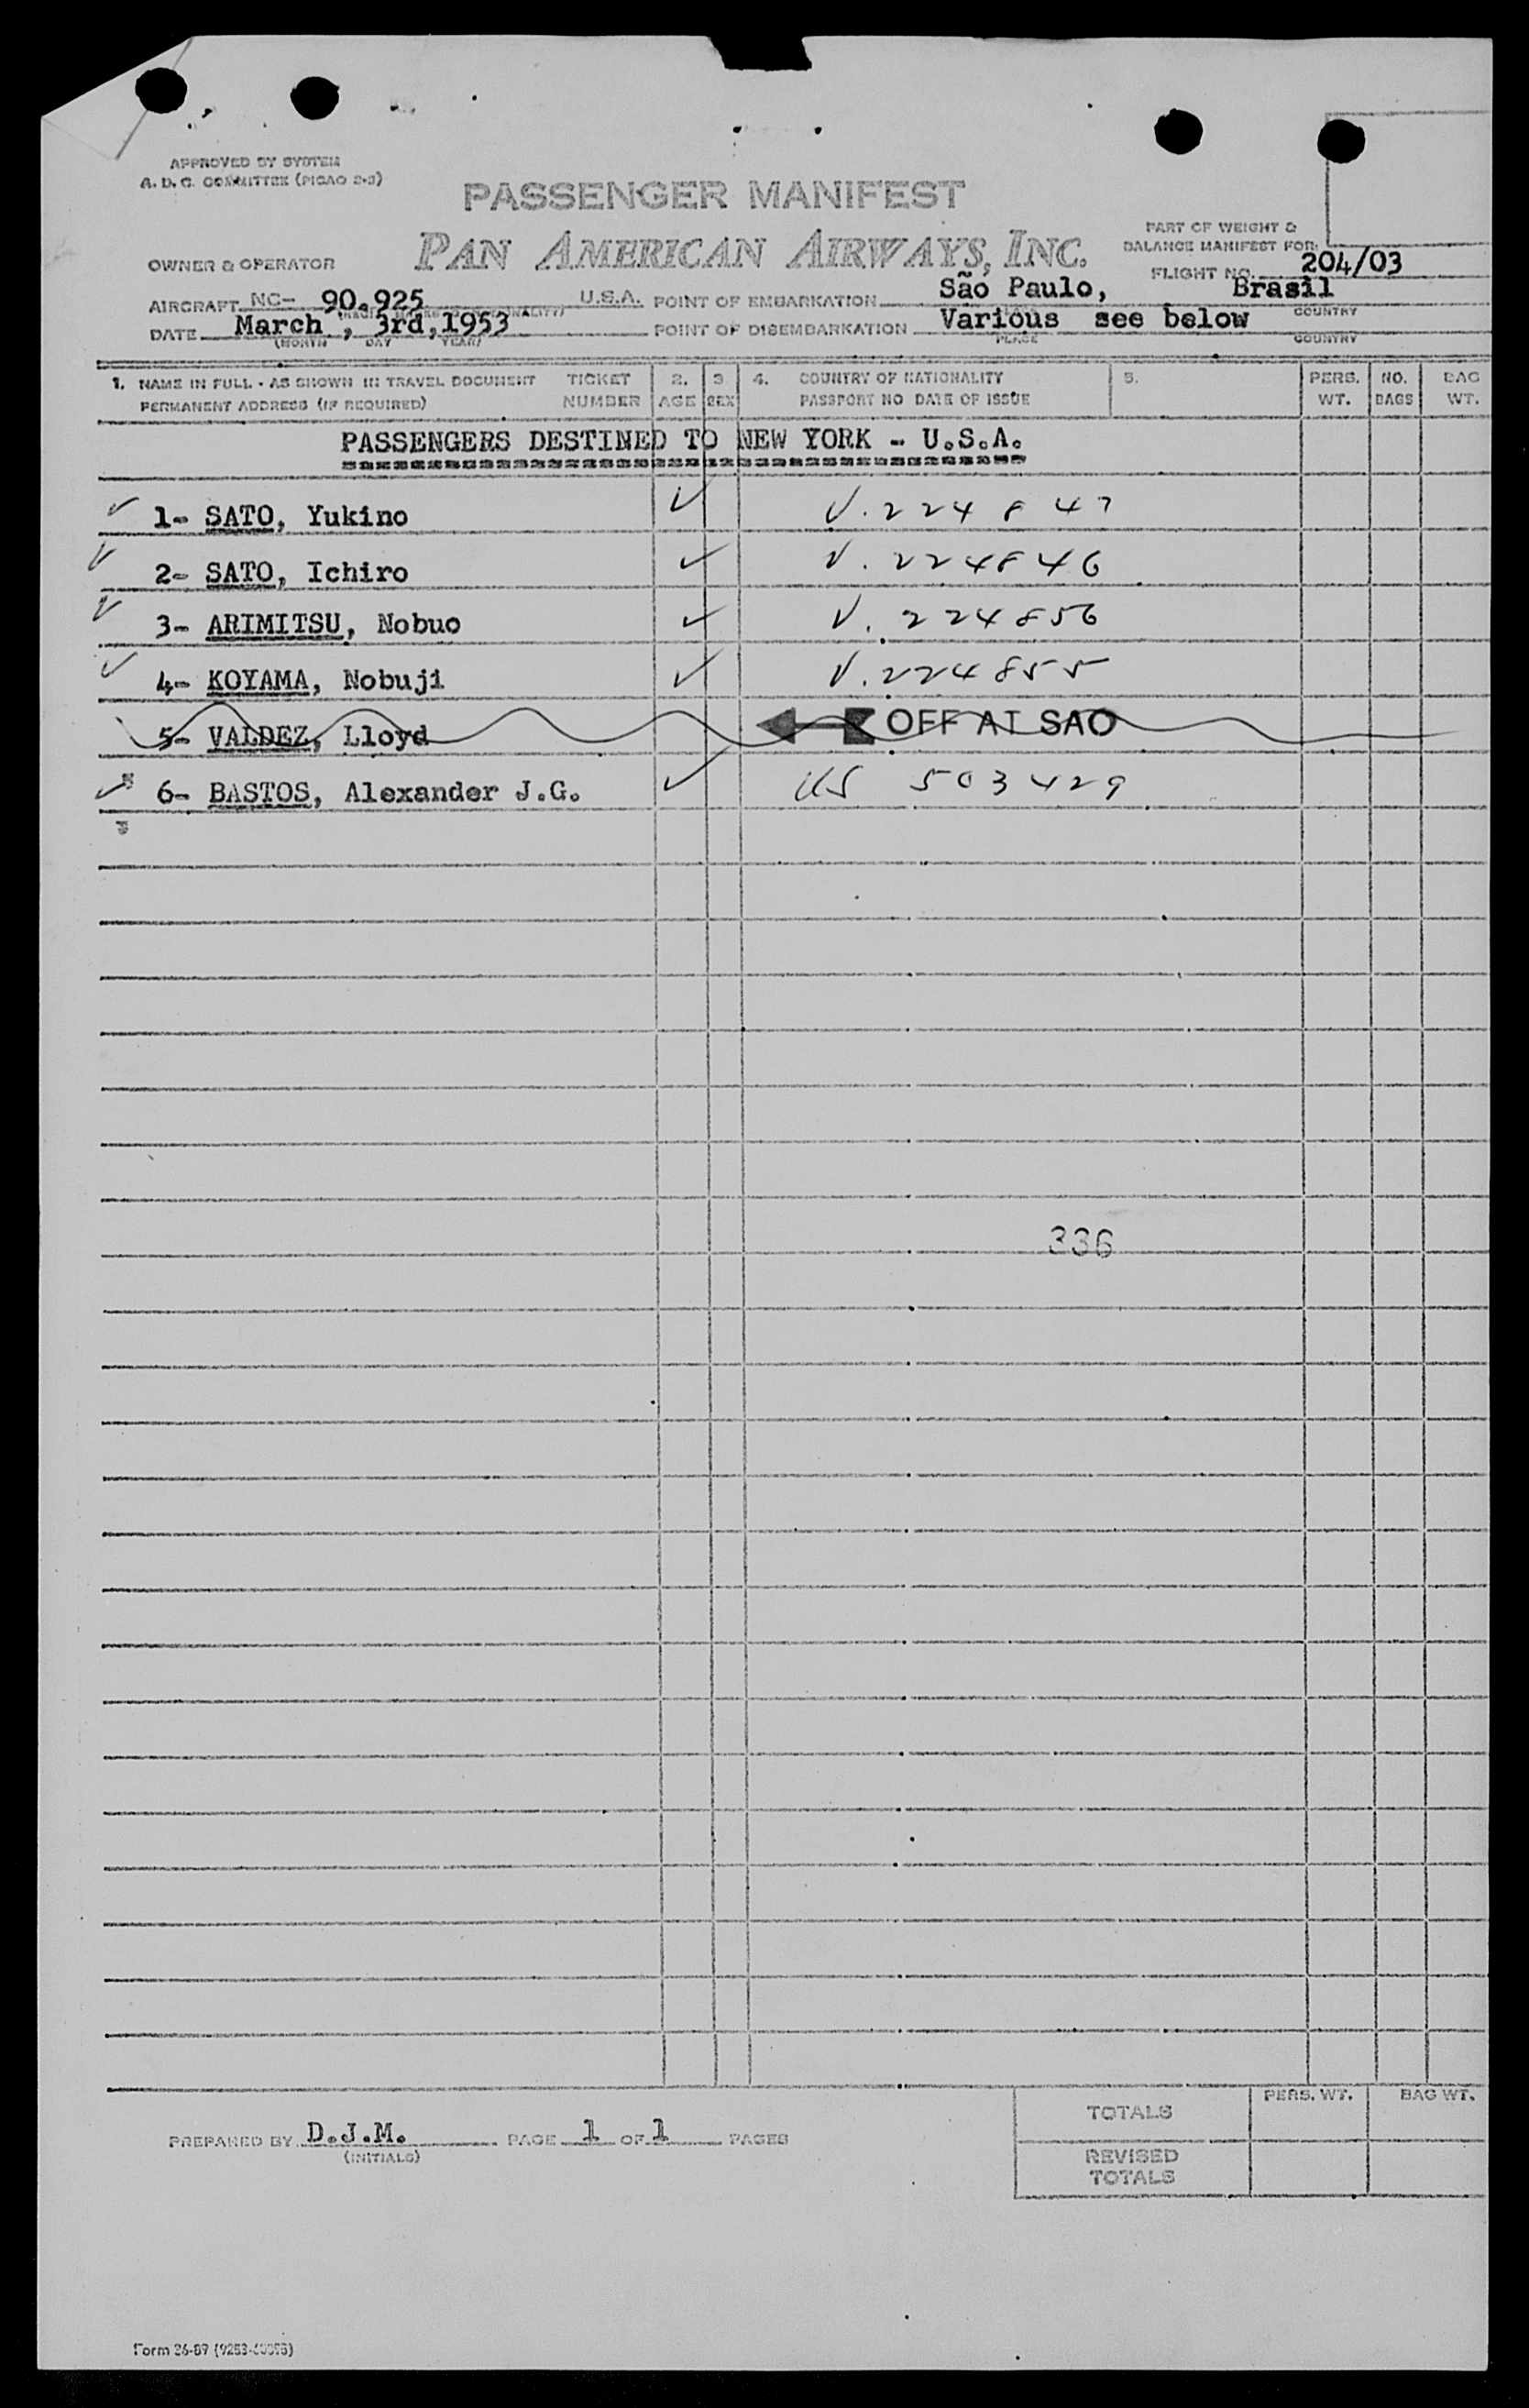 APPROVED BY SYSTEM
A. D. C. COMMITTEE (PICAO 2-3)
PASSENGER MANIFEST
PAN AMERICAN AIRWAYS, INC.
PART OF WEIGHT &
BALANCE MANIFEST FOR:
OWNER & OPERATOR
FLIGHT NO. 204/03
AIRCRAFT NC- 90.925 U.S.A. POINT OF EMBARKATION São Paulo, Brasil
COUNTRY
DATE March , 3rd,1953 POINT OF DISEMBARKATION Various see below
(MONTH DAY YEAR) PLACE COUNTRY
1. NAME IN FULL - AS SHOWN IN TRAVEL DOCUMENT TICKET 2. 3 4. COUNTRY OF NATIONALITY 5. PERS. NO. BAG
PERMANENT ADDRESS (IF REQUIRED) NUMBER AGE SEX PASSPORT NO DATE OF ISSUE WT. BAGS WT.
PASSENGERS DESTINED TO NEW YORK - U.S.A.
1- SATO, Yukino V. 224847
2- SATO, Ichiro V. 224846
3- ARIMITSU, Nobuo V. 224856
4- KOYAMA, Nobuji V. 224855
5- VALDEZ, Lloyd OFF AT SAO
6- BASTOS, Alexander J.G. US 503429
336
PERS. WT. BAG WT.
TOTALS
PREPARED BY D.J.M. PAGE 1 OF 1 PAGES
(INITIALS)
REVISED
TOTALS
Form 26-89